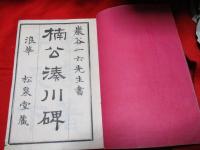 巖谷一六先生書
楠公湊川碑
浪華 松泉堂蔵